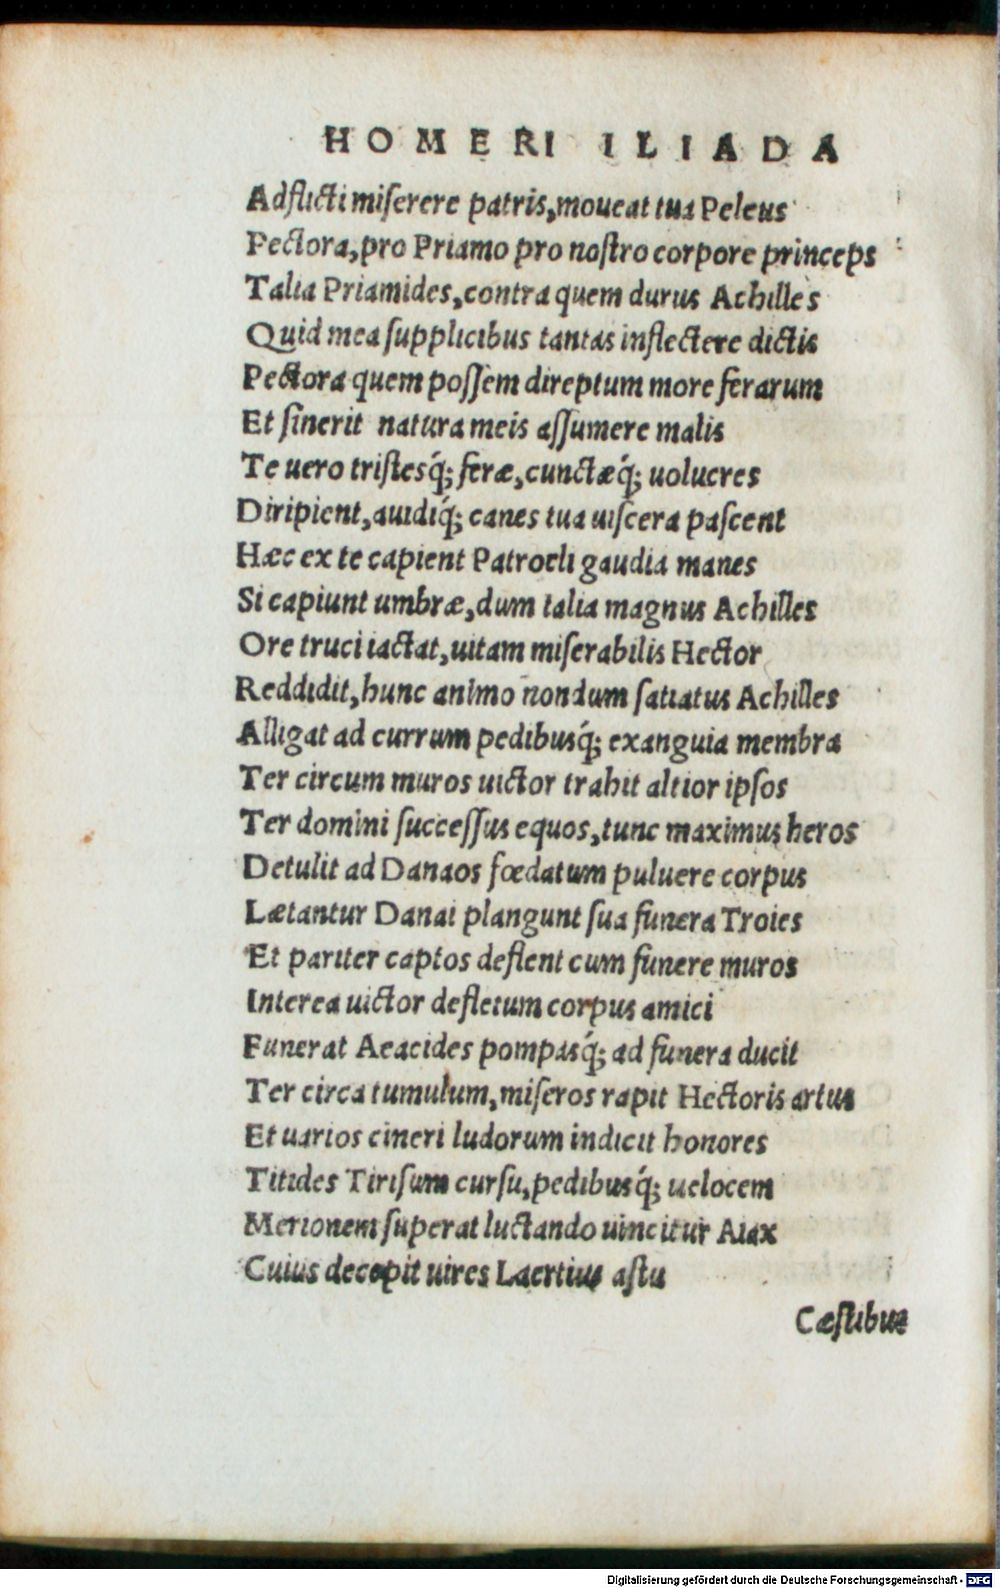 HOMERI ILIADA
Adflicti miſerere patris, moueat tua Peleus
Pectora, pro Priamo pro noſtro corpore princeps
Talia Priamides, contra quem durus Achilles
Quid mea ſupplicibus tantas inflectere dictis
Pectora quem poſſem direptum more ferarum
Et ſinerit natura meis aſſumere malis
Te uero triſtesq́; feræ, cunctæq́; uolucres
Diripient, auidiq́; canes tua uiſcera paſcent
Hæc ex te capient Patrocli gaudia manes
Si capiunt umbræ, dum talia magnus Achilles
Ore truci iactat, uitam miſerabilis Hector
Reddidit, hunc animo nondum ſatiatus Achilles
Alligat ad currum pedibusq́; exanguia membra
Ter circum muros uictor trahit altior ipſos
Ter domini ſucceſſus equos, tunc maximus heros
Detulit ad Danaos fœdatum puluere corpus
Lætantur Danai plangunt ſua funera Troies
Et pariter captos deflent cum funere muros
Interea uictor defletum corpus amici
Funerat Aeacides pompasq́; ad funera ducit
Ter circa tumulum, miſeros rapit Hectoris artus
Et uarios cineri ludorum indicit honores
Titides Tiriſum curſu, pedibusq́; uelocem
Merionem ſuperat luctando uincitur Aiax
Cuius decepit uires Laertius aſtu
Cæſtibus
Digitalisierung gefördert durch die Deutsche Forschungsgemeinschaft - DFG